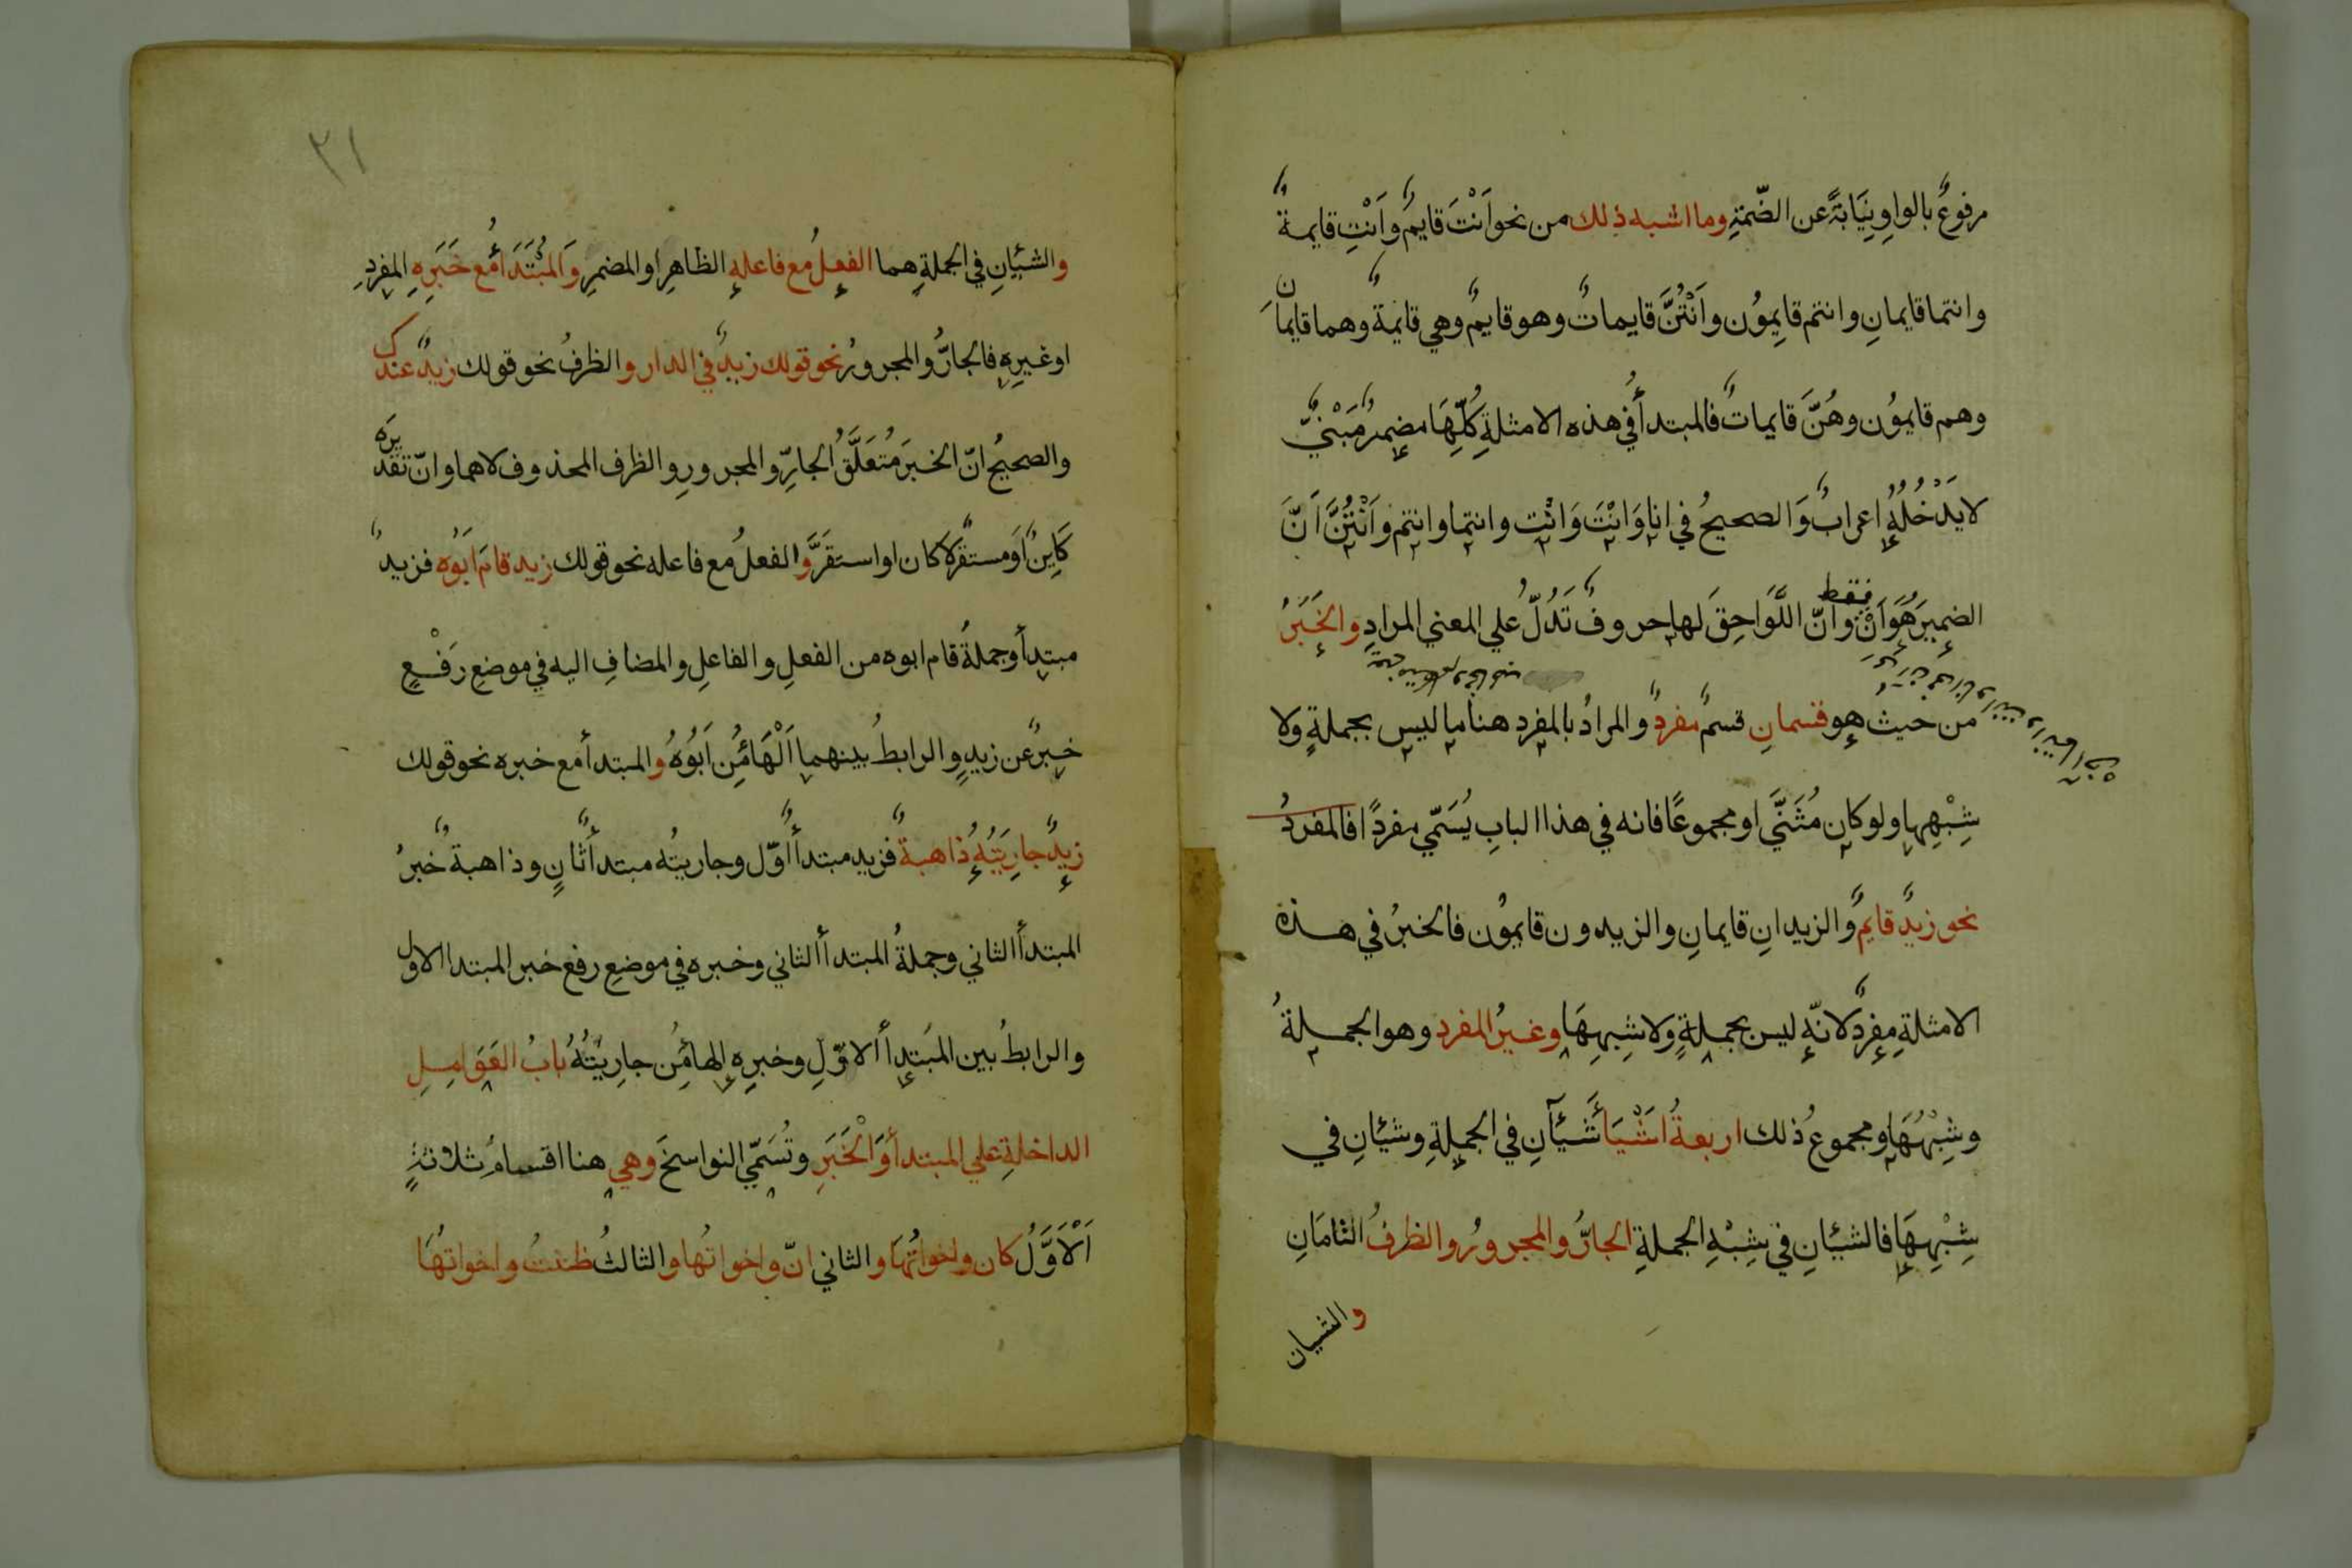 مرفوعٌ بالواوِ نِيَابَةً عن الضّمّةِ وما اشبه ذلك من نحو اَنْتَ قايمٌ وَاَنْتِ قايمةٌ
وانتما قايمانِ وانتم قايمُون واَنْتُنَّ قايماتٌ وهو قايمٌ وهي قايمةٌ وهما قايمانِ
وهم قايمُون وهُنَّ قايماتٌ فالمبتدأُ في هذه الامثلةِ كُلِّهَا مضمرٌ مَبْنيٌّ
لا يَدْخُلُهُ اعرابٌ وَالصحيحُ في انا وَانْتَ وَانْتِ وانتما وانتم واَنْتُنَّ اَنَّ
الضميرَ هُوَ اَنْ فقط وانّ اللَّوَاحِقَ لها حروفٌ تَدُلّ علي المعني المرادِ والخَبَرُ
من حيث هو قسمانِ قسمٌ مفردٌ والمرادُ بالمفردِ هنا ما ليس بجملةٍ ولا
شِبْهِها ولو كان مُثَنَّي او مجموعًا فانه في هذا البابِ يُسَمّي مفردًا فالمفردُ
نحو زيدٌ قايمٌ والزيدانِ قايمانِ والزيدون قايمُون فالخبرُ في هذه
الامثلةِ مفردٌ لانّه ليس بجملةٍ ولا شِبهِهَا وغيرُ المفردِ وهو الجملةُ
وشِبْهُهَا ومجموعُ ذلك اربعةُ اَشْيَاَ شَيْآنِ في الجملةِ وشيْانِ في
شِبْهِهَا فالشيْانِ في شِبْهِ الجملةِ الجارُّ والمجرورُ والظرفُ التامَانِ
والشيان
٣١
والشيْانِ في الجملةِ هما الفعلُ مع فاعلهِ الظاهِرِ او المضمرِ وَالمُبْتَدَأُ مع خَبَرِهِ المفردِ
او غيرِهِ فالجارُّ والمجرورُ نحو قولك زيدٌ في الدار والظرفُ نحو قولك زيدٌ عندك
والصحيحُ انّ الخبرَ مُتَعَلَّقُ الجارِّ والمجرورِ والظرف المحذوف لاهما وانّ تقديرَه
كَاينٌ اَو مستقرٌّ لا كان او استقرَّ والفعلُ مع فاعله نحو قولك زيد قامَ ابَوُه فزيدٌ
مبتدأ وجملةُ قام ابوه من الفعلِ والفاعلِ والمضافِ اليه في موضعِ رَفْعٍ
خبرٌ عن زيدٍ والرابطُ بينهما اَلْهَاُ مِن اَبُوُهُ والمبتدأُ مع خبره نحو قولك
زيدٌ جارِيَتُهُ ذاهبةٌ فزيد مبتدأٌ اوّل وجاريتُه مبتدأٌ ثانٍ وذاهبةٌ خبرُ
المبتدأ الثاني وجملةُ المبتدأ الثاني وخبره في موضعِ رفع خبر المبتدا الاول
والرابطُ بين المبَتدأ الاوّلِ وخبرِهِ الهاُ مِن جارِيَتُهُ بابُ العَوَامِلِ
الداخلةِ علي المبتدأ وَالْخَبَرِ وتُسَمّي النواسخَ وهي هنا اقسامُ ثلاثةٍ
اَلْاَوَّلُ كان واخواتُهَا والثاني انّ واخواتُها والثالثُ ظننتُ واخواتُهَا